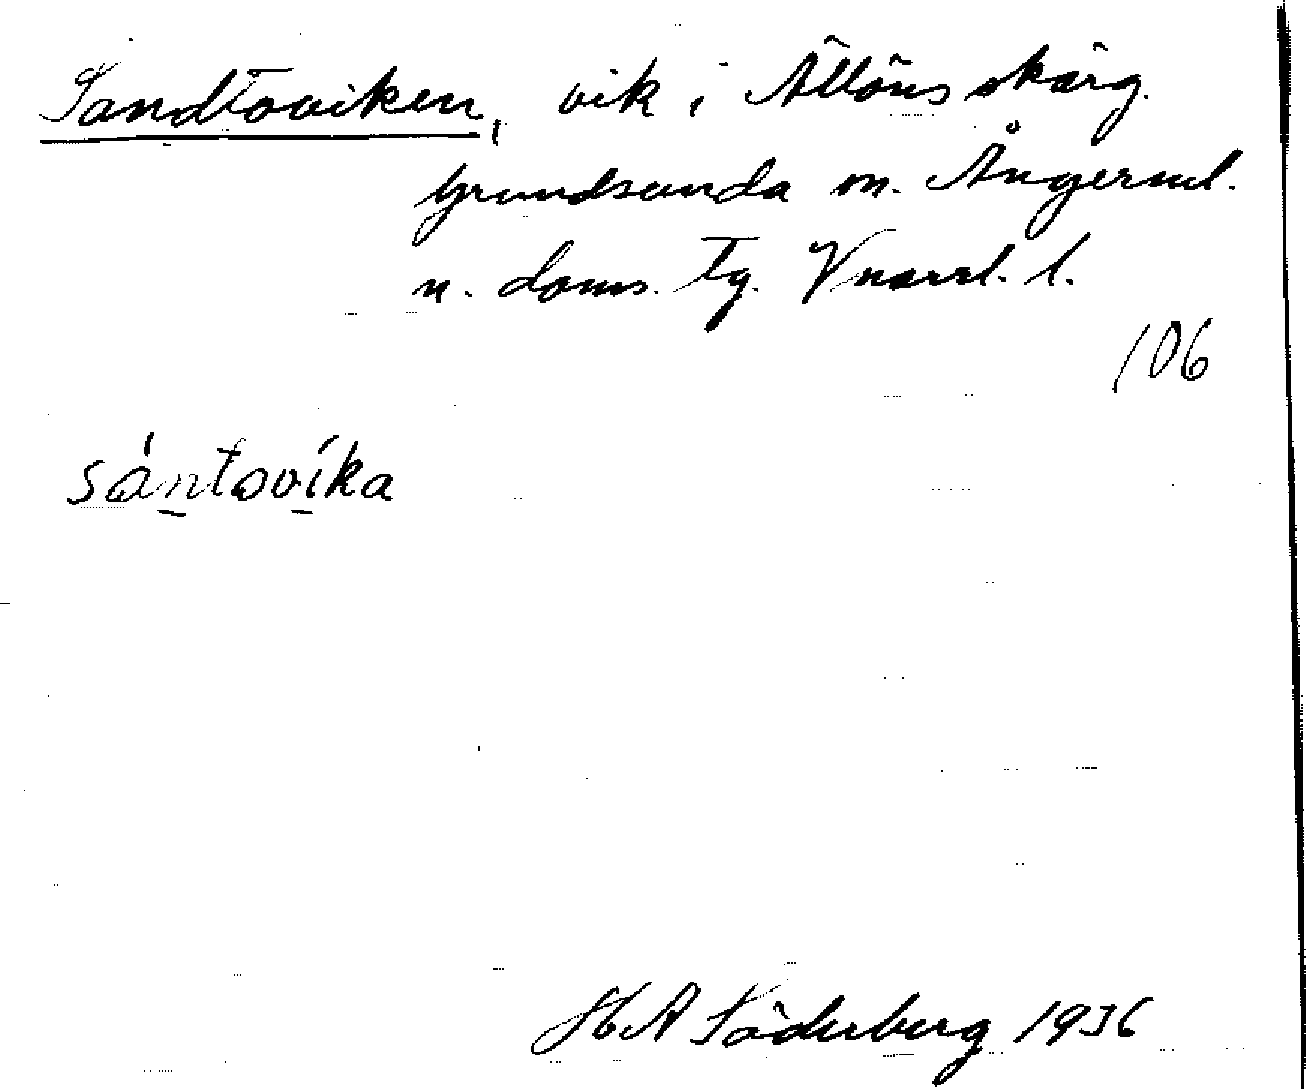 Sandtoviken, vik i Ällöns skärg.
Grundsunda sn. Ångerml.
n. doms. tg. Vnorrl. l.
106
sántovíka
H A Söderberg 1936